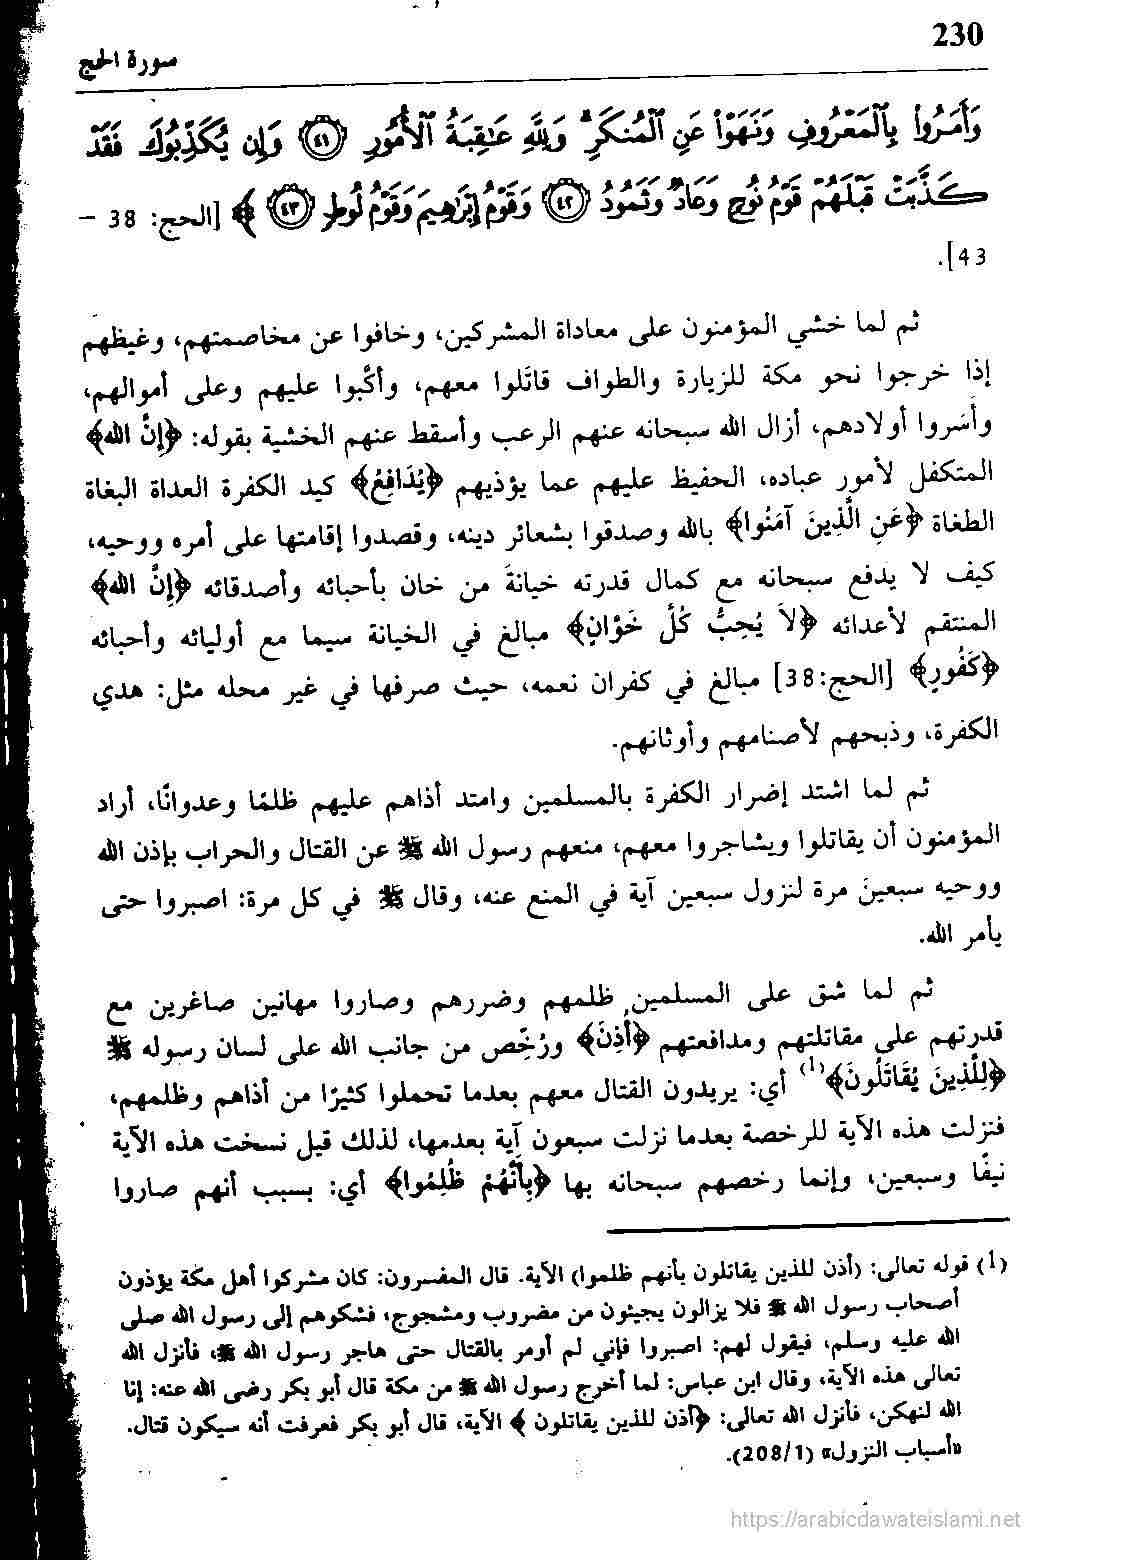 230
سورة الحج
وَأَمَرُوا۟ بِٱلْمَعْرُوفِ وَنَهَوْا۟ عَنِ ٱلْمُنكَرِ ۗ وَلِلَّهِ عَـٰقِبَةُ ٱلْأُمُورِ ﴿٤١﴾ وَإِن يُكَذِّبُوكَ فَقَدْ
كَذَّبَتْ قَبْلَهُمْ قَوْمُ نُوحٍ وَعَادٌ وَثَمُودُ ﴿٤٢﴾ وَقَوْمُ إِبْرَٰهِيمَ وَقَوْمُ لُوطٍ ﴿٤٣﴾ ﴾ [الحج: 38 –
43].
ثم لما خشي المؤمنون على معاداة المشركين، وخافوا عن مخاصمتهم، وغيظهم
إذا خرجوا نحو مكة للزيارة والطواف قاتَلوا معهم، وأكَبوا عليهم وعلى أموالهم،
وأسَروا أولادهم، أزال الله سبحانه عنهم الرعب وأسقط عنهم الخشية بقوله: ﴿إِنَّ الله﴾
المتكفل لأمور عباده، الحفيظ عليهم عما يؤذيهم ﴿يُدَافِعُ﴾ كيد الكفرة العداة البغاة
الطغاة ﴿عَنِ الَّذِينَ آمَنُوا﴾ بالله وصدقوا بشعائر دينه، وقصدوا إقامتها على أمره ووحيه،
كيف لا يدفع سبحانه مع كمال قدرته خيانةَ من خان بأحبائه وأصدقائه ﴿إِنَّ الله﴾
المنتقم لأعدائه ﴿لاَ يُحِبُّ كُلَّ خَوَّانٍ﴾ مبالغ في الخيانة سيما مع أوليائه وأحبائه
﴿كَفُورٍ﴾ [الحج:38] مبالغ في كفران نعمه، حيث صرفها في غير محله مثل: هدي
الكفرة، وذبحهم لأصنامهم وأوثانهم.
ثم لما اشتد إضرار الكفرة بالمسلمين وامتد أذاهم عليهم ظلمًا وعدوانًا، أراد
المؤمنون أن يقاتلوا ويشاجروا معهم، منعهم رسول الله ﷺ عن القتال والحراب بإذن الله
ووحيه سبعينَ مرة لنزول سبعين آية في المنع عنه، وقال ﷺ في كل مرة: اصبروا حتى
يأمر الله.
ثم لما شق على المسلمين ظلمهم وضررهم وصاروا مهانين صاغرين مع
قدرتهم على مقاتلتهم ومدافعتهم ﴿أُذِنَ﴾ ورُخِّص من جانب الله على لسان رسوله ﷺ
﴿لِلَّذِينَ يُقَاتَلُونَ﴾(1) أي: يريدون القتال معهم بعدما تحملوا كثيرًا من أذاهم وظلمهم،
فنزلت هذه الآية للرخصة بعدما نزلت سبعون آية بعدمها، لذلك قيل نسخت هذه الآية
نيفًا وسبعين، وإنما رخصهم سبحانه بها ﴿بِأَنَّهُمْ ظُلِمُوا﴾ أي: بسبب أنهم صاروا
(1) قوله تعالى: (أذن للذين يقاتلون بأنهم ظلموا) الآية. قال المفسرون: كان مشركوا أهل مكة يؤذون
أصحاب رسول الله ﷺ فلا يزالون يجيئون من مضروب ومشجوج، فشكوهم إلى رسول الله صلى
الله عليه وسلم، فيقول لهم: اصبروا فإني لم أومر بالقتال حتى هاجر رسول الله ﷺ، فأنزل الله
تعالى هذه الآية، وقال ابن عباس: لما أخرج رسول الله ﷺ من مكة قال أبو بكر رضى الله عنه: إنا
الله لنهكن، فأنزل الله تعالى: ﴿أذن للذين يقاتلون ﴾ الآية، قال أبو بكر فعرفت أنه سيكون قتال.
«أسباب النزول» (208/1).
https://arabicdawateislami.net